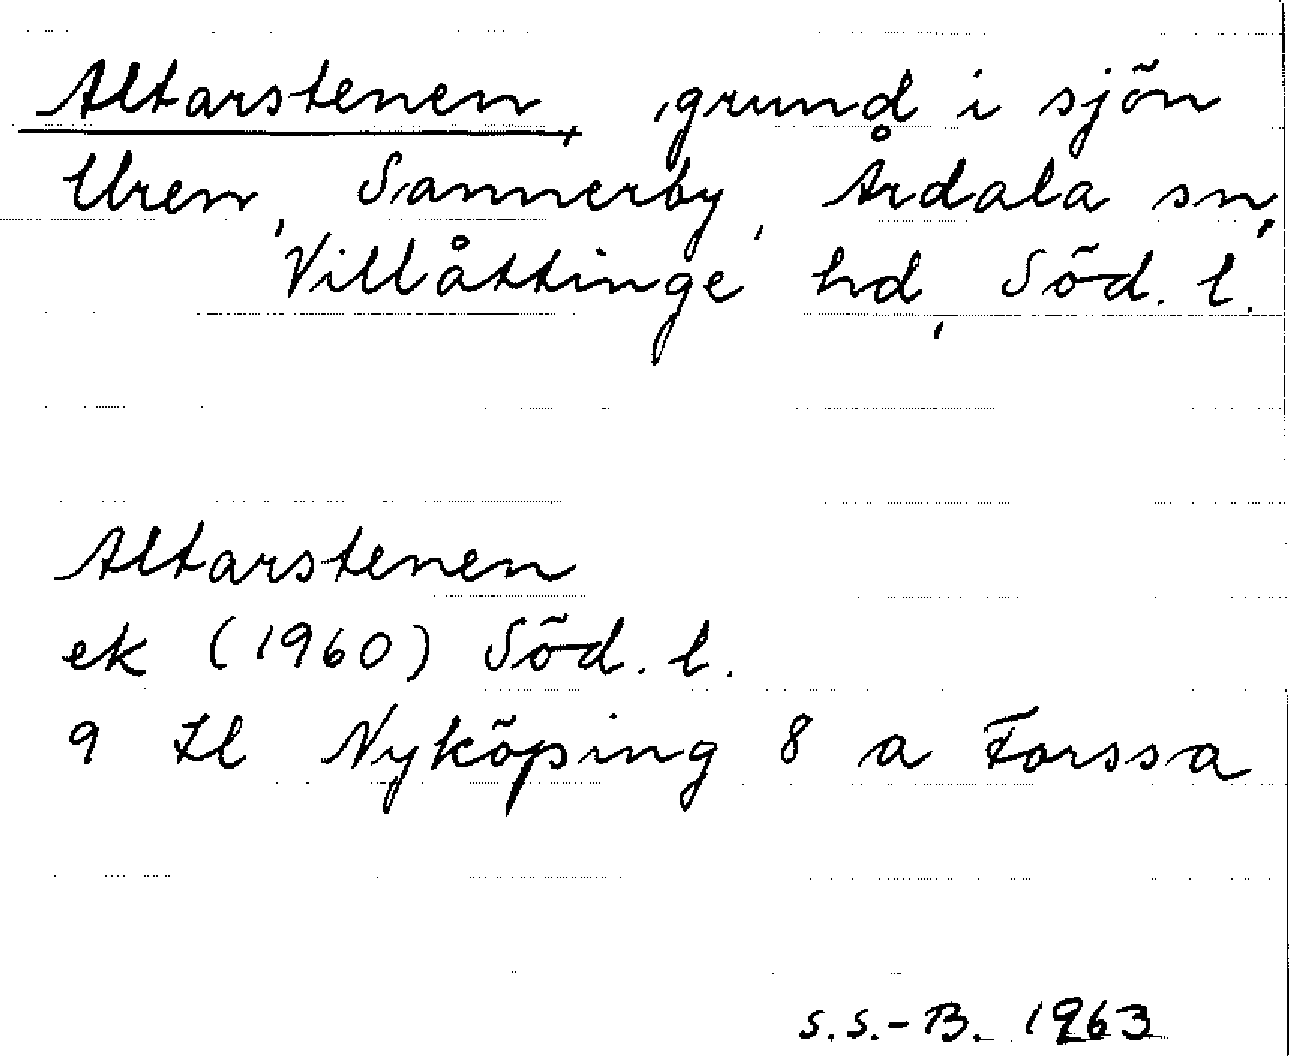 Altarstenen, grund i sjön
Uren, Sannerby, Årdala sn,
Villåttinge hd, Söd. l.
Altarstenen
ek (1960) Söd. l.
9 Il Nyköping 8 a Forssa
S.S.-B. 1963